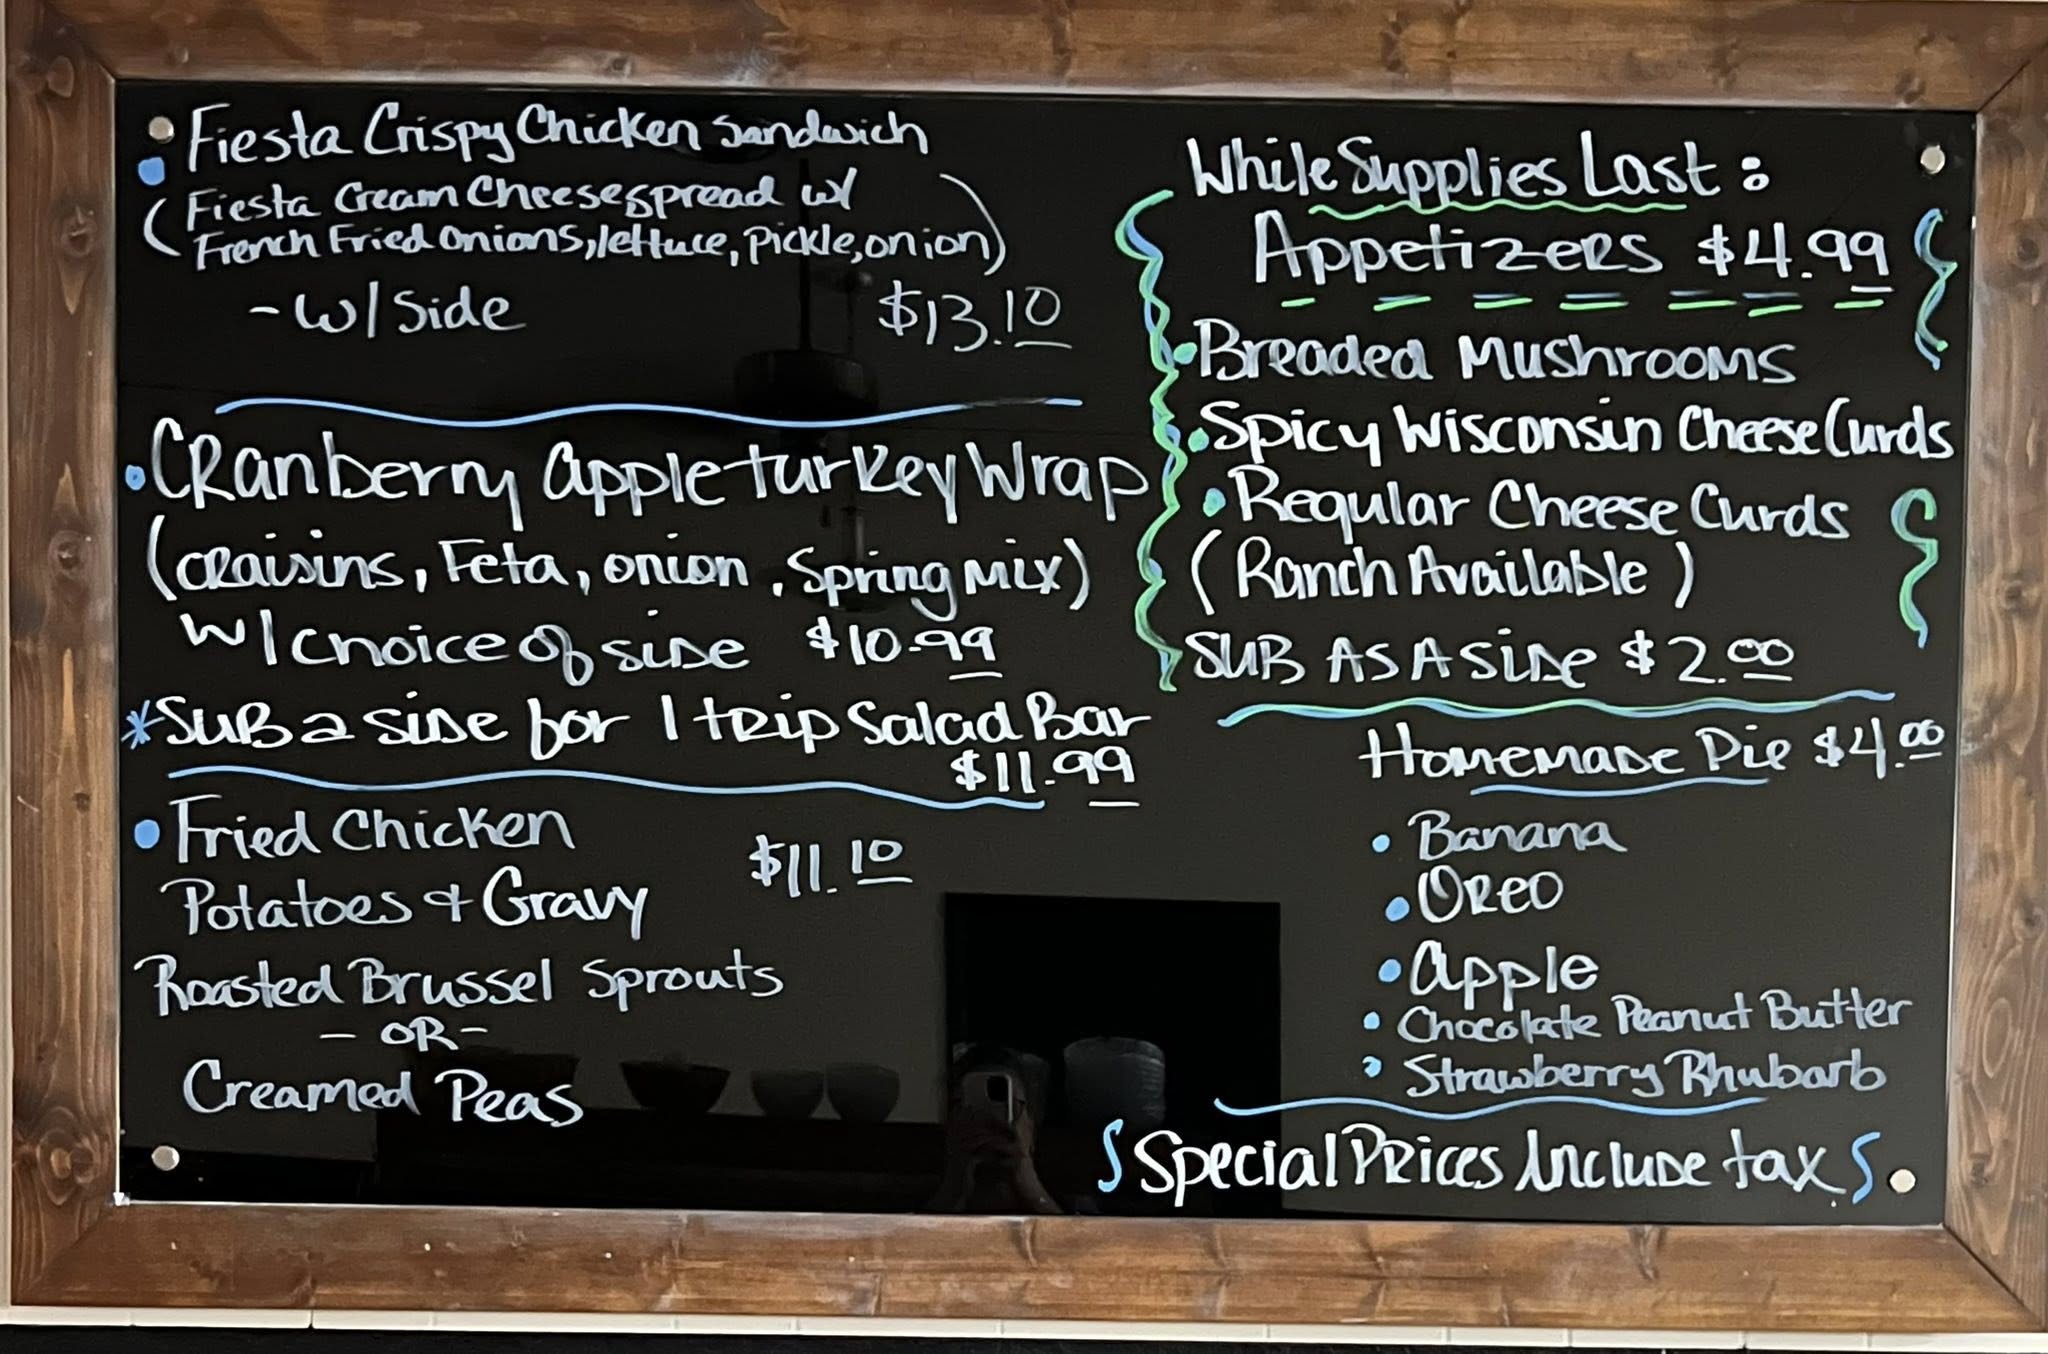 Fiesta Crispy Chicken Sandwich
(Fiesta Cream Cheese spread w/
French Fried Onions, lettuce, Pickle, onion)
- W/ Side $13.10
Cranberry Apple Turkey Wrap
(Craisins, Feta, onion, Spring Mix)
W/ Choice of Side $10.99
*Sub a side for 1 trip Salad Bar
$11.99
Fried Chicken $11.10
Potatoes & Gravy
Roasted Brussel Sprouts
- OR -
Creamed Peas
While Supplies Last:
Appetizers $4.99
Breaded Mushrooms
Spicy Wisconsin Cheese Curds
Regular Cheese Curds
(Ranch Available)
SUB AS A Side $2.00
Homemade Pie $4.00
Banana
Oreo
Apple
Chocolate Peanut Butter
Strawberry Rhubarb
Special Prices Include tax